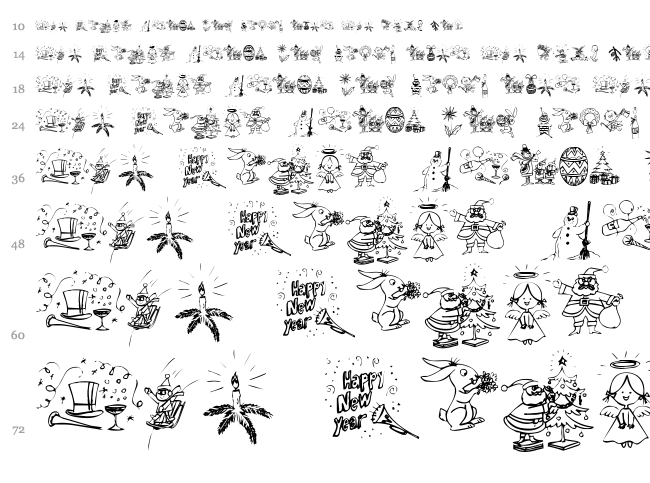 10
14
18
24
Happy
New
Year
36
Happy
New
Year
48
Happy
New
Year
60
Happy
New
Year
72
Happy
New
Year